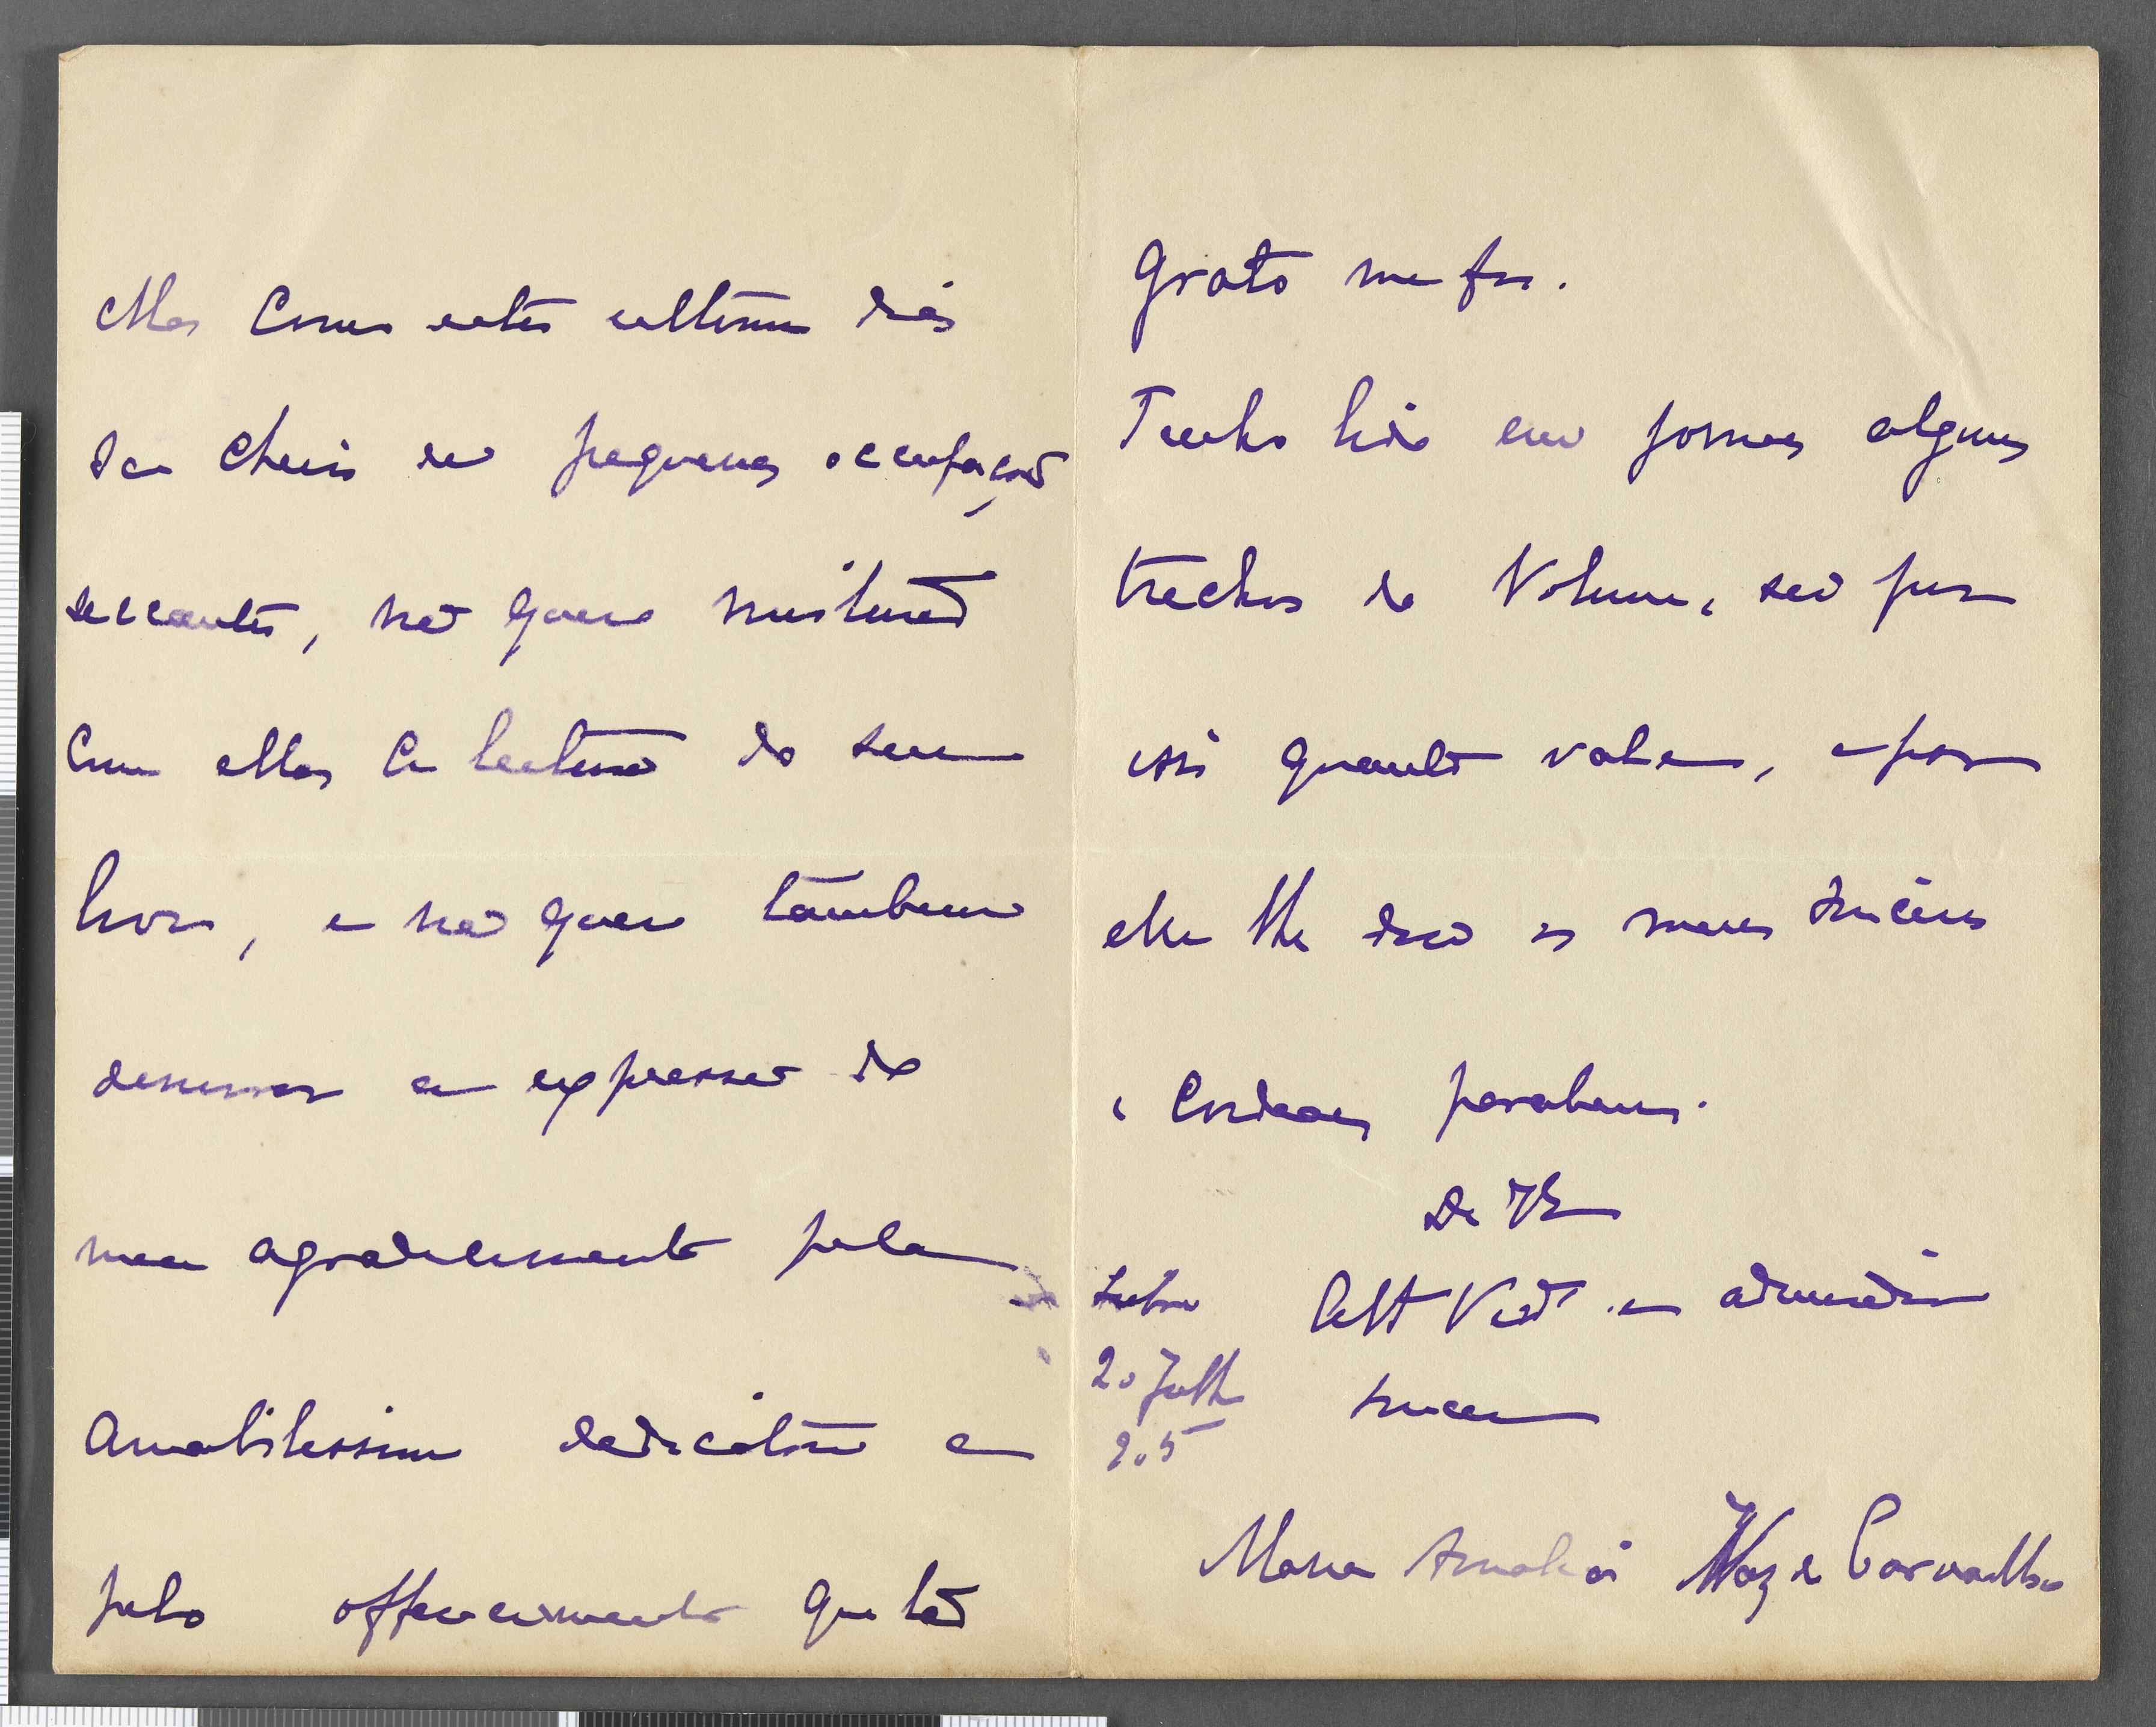 Mas como estes ultimos dias
são cheios de pequenas occupações
seccantes, não quero misturar
com ellas a leitura do seu
livro, e não quero tambem
demorar a expressão do
meu agradecimento pela
amabilissima dedicatoria e
pelo offerecimento que tão
grato me foi.
Tenho lido em jornaes alguns
trechos do volume, sei por
isso quanto valem, e por
elle lhe dou os meus sinceros
e cordeaes parabens.
De VEx
Lisboa
20 Julho
905
Att Ven e admiradora
sincera
Maria Amalia Vaz de Carvalho